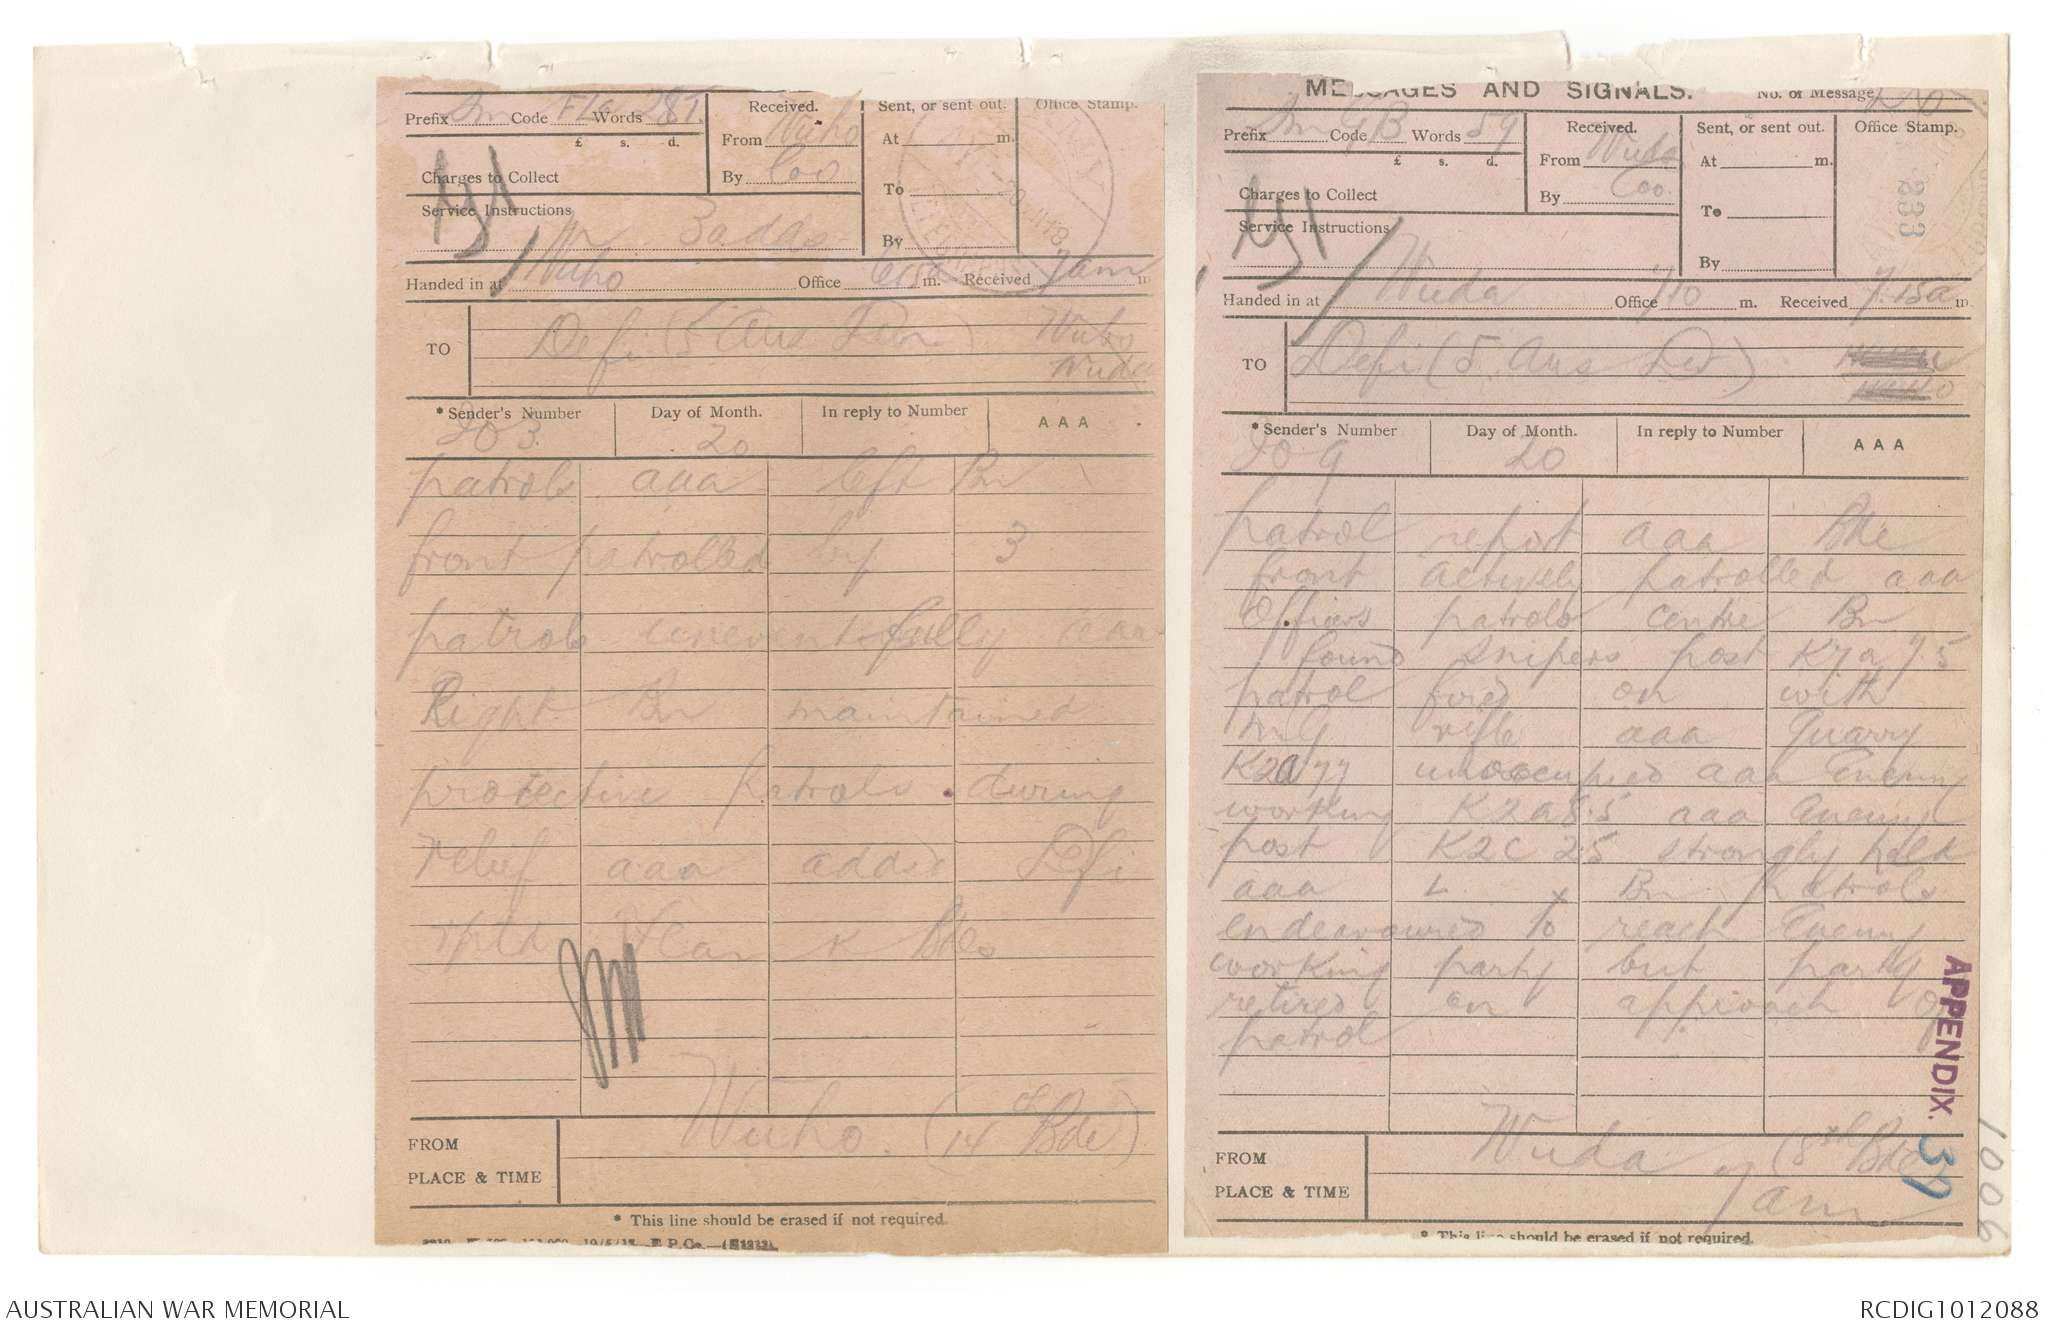 Prefix Sm Code FLa Words 28
£ s. d.
Charges to Collect
Service Instructions
3 adds
Received.
From Wuho
By Coo
Sent, or sent out.
At m.
To
By
Office Stamp.
Handed in at Wuho Office m. Received 7am m
TO Defi (5 Aus Divn) Wuho
Wuda
* Sender's Number Day of Month. In reply to Number AAA
203 20
patrols aaa left Bn
front patrolled by 3
patrols uneventfully aaa
Right Bn maintained
protective patrols during
relief aaa added Defi
rptd
Bdes
FROM
PLACE & TIME
Wuho. (14 Bde)
* This line should be erased if not required.
MESSAGES AND SIGNALS.
No. of Message
Prefix Sm Code GB Words 59
£ s. d.
Charges to Collect
Service Instructions
Received.
From Wuda
By Coo.
Sent, or sent out.
At m.
To
By
Office Stamp.
333
Handed in at Wuda Office 710 m. Received 7.15a m.
TO Defi (5 Aus Div)
* Sender's Number Day of Month. In reply to Number AAA
209 20
patrol report aaa Bde
front actively patrolled aaa
Officers patrols centre Bn
found snipers post K7a 7.5
patrol fired on with
M.G rifle aaa Quarry
K2a77 unoccupied aaa Enemy
working K2a8.5 aaa Enemy
post K2C 2.5 strongly held
aaa L x Bn patrols
endeavoured to reach Enemy
working party but party
retired on approach of
patrol
FROM
PLACE & TIME
Wuda (8th Bde)
7am
* This line should be erased if not required.
APPENDIX. 37
1006
AUSTRALIAN WAR MEMORIAL
RCDIG1012088